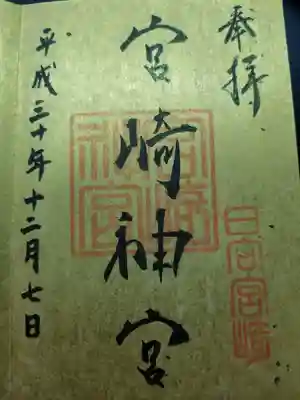 奉拝
宮崎神宮
平成三十年十二月七日
宮崎神宮